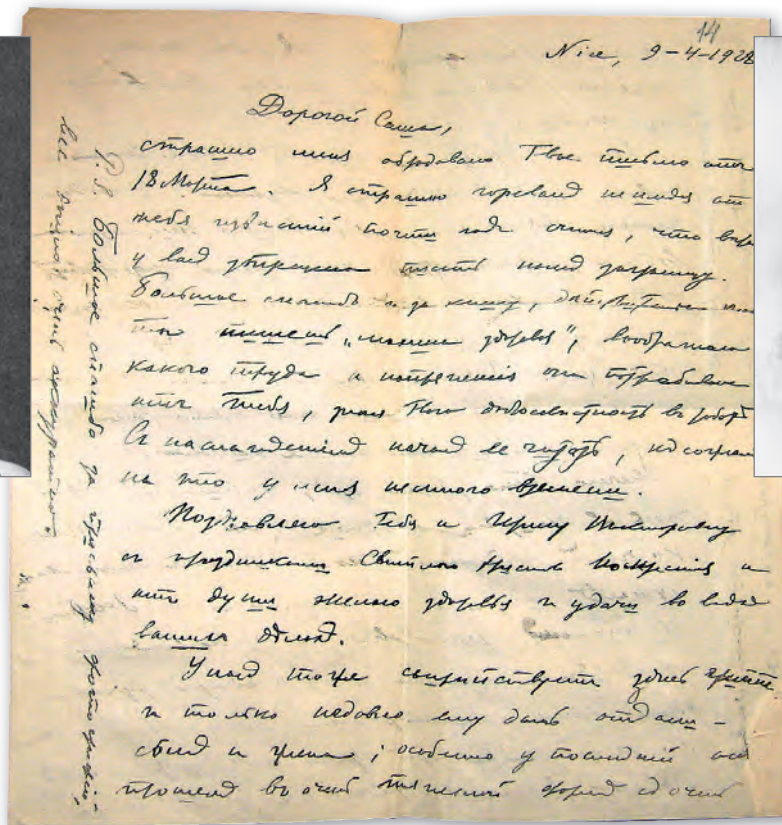 14
Nice, 9-4-1928
Дорогой Саша,
страшно меня обрадовало Твое письмо отъ
18 Марта. Я страшно горевалъ не имѣя отъ
тебя извѣстий почти годъ
у васъ писать
Большое спасибо и за книгу,
ты пишешь „ ", воображаю
какого труда и напряженія она потребовала
отъ тебя, зная Твою добросовѣстность въ работѣ
Съ наслажденіемъ началъ ее читать, но
на это у меня немного времени.
Поздравляю Тебя и Ирину
съ праздникомъ Свѣтлаго Христова Воскресенія и
отъ души желаю здоровья и удачи во всѣхъ
вашихъ дѣлахъ.
У насъ тоже свирѣпствуетъ здѣсь гриппъ
и только недавно ему дань отдали –
и ; особенно у послѣдней онъ
прошелъ въ очень тяжелой формѣ
P. S. Большое спасибо за присылку фотографій,
все вышло очень аккуратно.